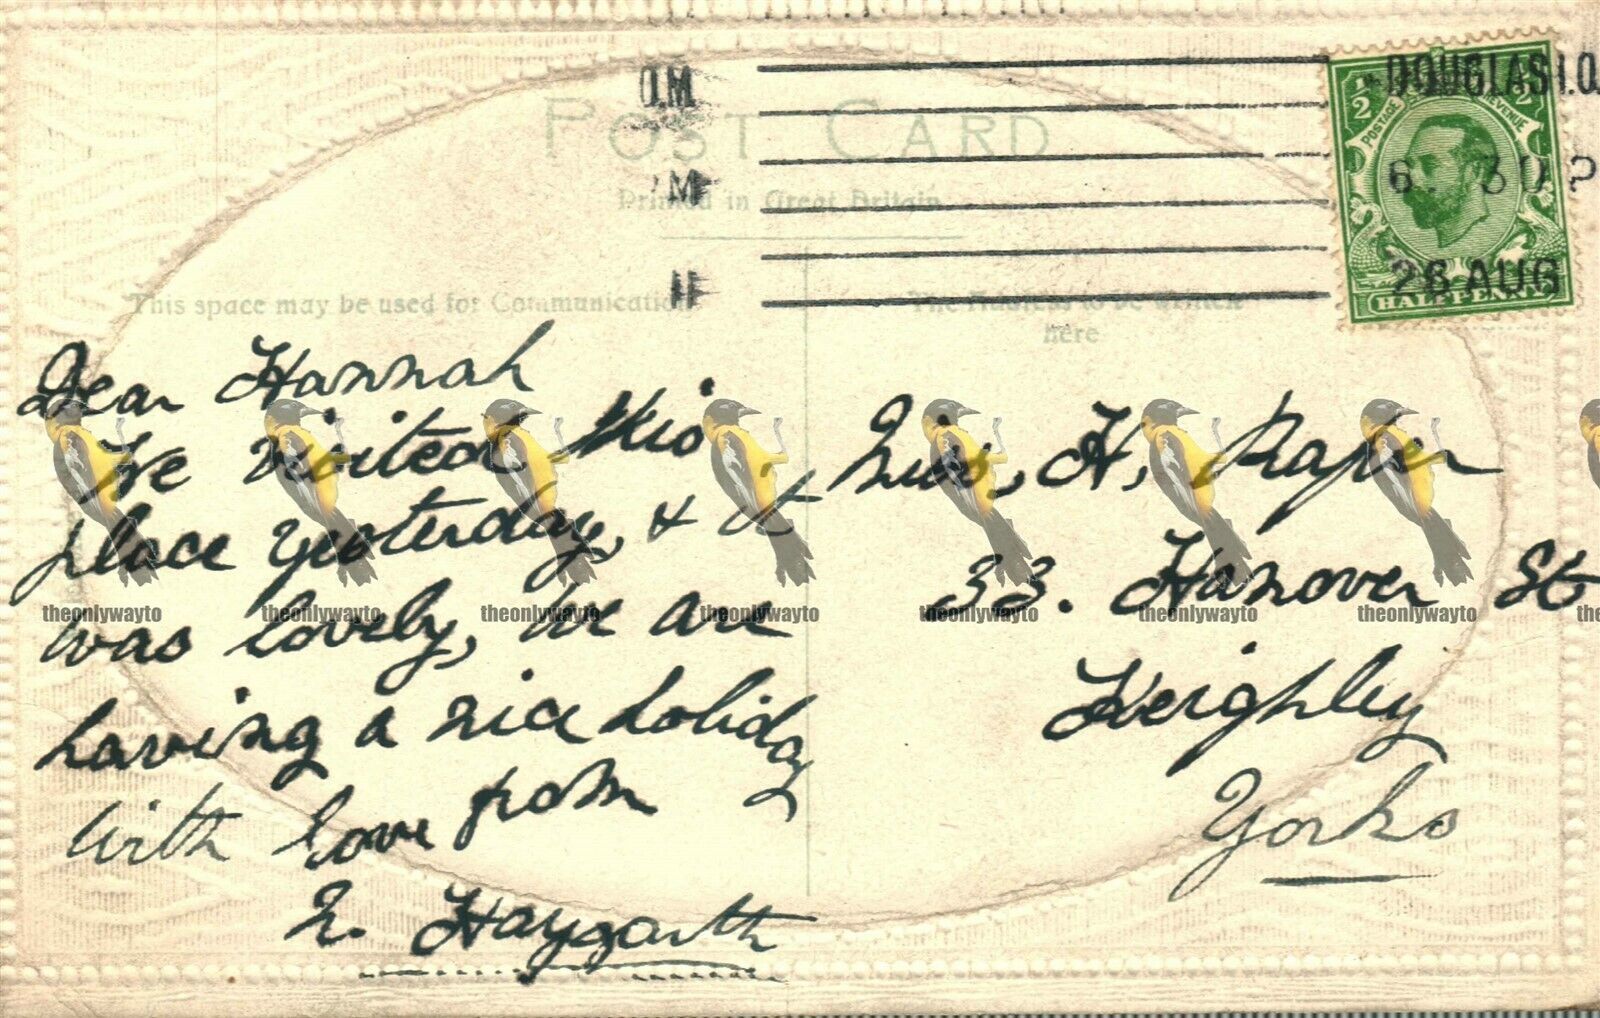 O.M.
'M
11
DOUGLAS I.O.
6. 30 P
26 AUG
POSTAGE REVENUE
1/2 1/2
HALFPENNY
POST CARD
Printed in Great Britain
This space may be used for Communication
The Address to be written
here
Dear Hannah
We visited this
place yesterday, & it
was lovely, we are
having a nice holiday
With love from
Haygarth
Miss, H, Raper
33. Hanover St
Keighley
Yorks
theonlywayto theonlywayto theonlywayto theonlywayto theonlywayto theonlywayto theonlywayto theo